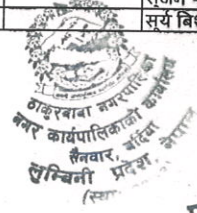 सूर्य बि
ठाकुरबाबा नगरपालिका
नगर कार्यपालिकाको कार्यालय
सैनवार, बर्दिया
लुम्बिनी प्रदेश, नेपाल